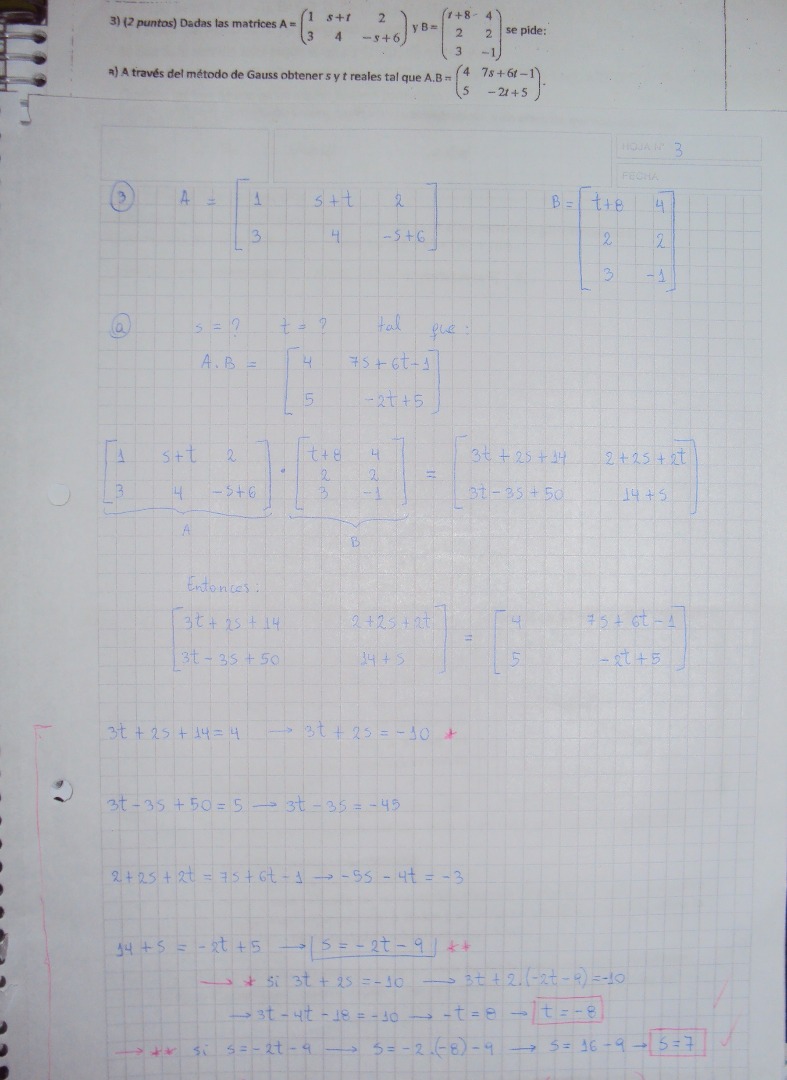 3) (2 puntos) Dadas las matrices A = (1 s+t 2 / 3 4 -s+6) y B = (t+8 4 / 2 2 / 3 -1) se pide:
a) A través del método de Gauss obtener s y t reales tal que A.B = (4 7s+6t-1 / 5 -2t+5).
HOJA N° 3
FECHA
3 A = [1 s+t 2 / 3 4 -s+6] B = [t+8 4 / 2 2 / 3 -1]
a s = ? t = ? tal que:
A.B = [4 7s+6t-1 / 5 -2t+5]
[1 s+t 2 / 3 4 -s+6] . [t+8 4 / 2 2 / 3 -1] = [3t+2s+14 2+2s+2t / 3t-3s+50 14+s]
A B
Entonces:
[3t+2s+14 2+2s+2t / 3t-3s+50 14+s] = [4 7s+6t-1 / 5 -2t+5]
3t+2s+14=4 → 3t+2s=-10 *
3t-3s+50=5 → 3t-3s=-45
2+2s+2t=7s+6t-1 → -5s-4t=-3
14+s=-2t+5 → s=-2t-9 **
→ * si 3t+2s=-10 → 3t+2.(-2t-9)=-10
→ 3t-4t-18=-10 → -t=8 → t=-8
→ ** si s=-2t-9 → s=-2.(-8)-9 → s=16-9 → s=7